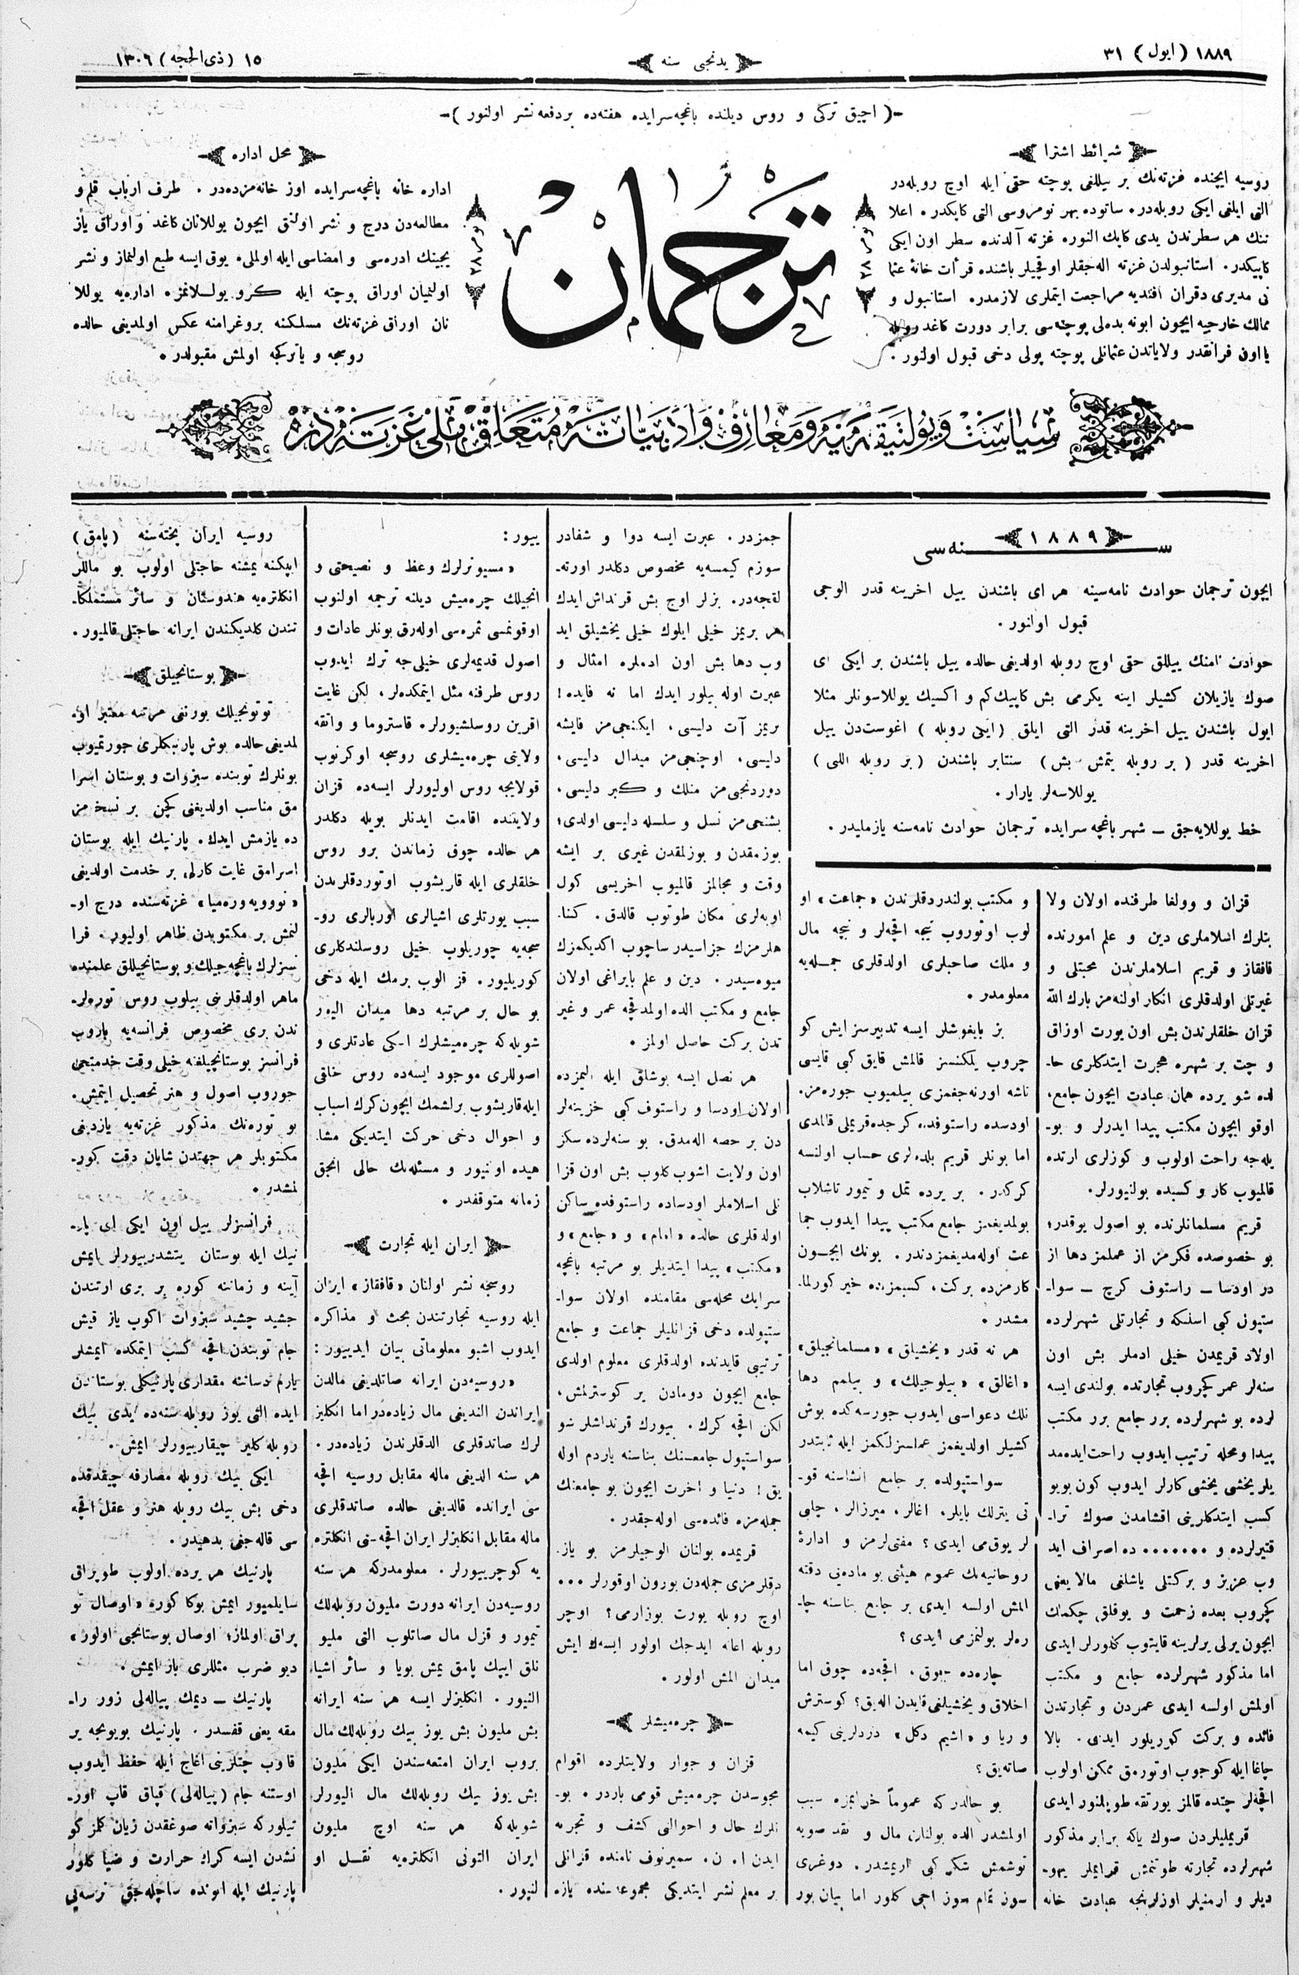 ١٨٨٩ (ایول) ٣١
یدنجی سنه
١٥ (ذی الحجه) ١٣٠٦
(اچیق ترکی و روس دیلنده باغچه‌سرایده هفته‌ده بر دفعه نشر اولنور)
شرائط اشترا
روسیه ایچنده غزته‌نك بر ییللغی پوچته حقی ایله اوچ روبله‌در
التی ایلغی ایکی روبله‌در. ساتوده بهر نومروسی التی کاپکدر. اعلا
ننك هر سطرندن یدی کاپك النوره غزته آلدنده سطر اون ایکی
کاپیکدر. استانبولدن غزته اله‌جقلر اوقجیلر باشنده قرأت خانهٔ عثما
نی مدیری دقران افندیه مراجعت ایتملری لازمدر. استانبول و
ممالك خارجیه ایچون ابونه بدلی پوچته‌سی برابر دورت کاغد روبله
یا اون فرانقدر ولایاتدن عثمانلی پوچته پولی دخی قبول اولنور.
ترجمان
نومرو ٢٨
نومرو ٢٨
محل اداره
اداره خانه باغچه‌سرایده اوز خانه‌مزده‌در. طرف ارباب قلم و
مطالعه‌دن درج و نشر اولنق ایچون یوللانان کاغد و اوراق یاز
یجینك ادره‌سی و امضاسی ایله اولملی. یوق ایسه طبع اولنماز و نشر
اولنمیان اوراق پوچته ایله کرو یوللانمز. اداره‌یه یوللا
نان اوراق غزته‌نك مسلکنه پروغرامنه عکس اولمدیغی حالده
روسجه و یا ترکجه اولمش مقبولدر.
سیاست و پولتیقه‌یه و معارف و ادبیاته متعلق ملی غزته‌در
١٨٨٩
سنه‌سی
ایچون ترجمان حوادث نامه‌سینه هر ای باشندن ییل اخرینه قدر الوجی
قبول اولنور.
حوادث نامنك ییللق حقی اوچ روبله اولدیغی حالده ییل باشندن بر ایکی ای
صوك یازیلان کشیلر اینه یکرمی بش کاپیك کم و اکسیك یوللاسونلر مثلا
ایول باشندن ییل اخرینه قدر التی ایلق (ایکی روبله) اغوست‌دن ییل
اخرینه قدر (بر روبله یتمش بش) سنتابر باشندن (بر روبله اللی)
یوللاسه‌لر یارار.
خط یوللایه‌جق ــ شهر باغچه‌سرایده ترجمان حوادث نامه‌سنه یازملیدر.
قزان و وولغا طرفنده اولان ولا
یتلرك اسلاملری دین و علم امورنده
قافقاز و قریم اسلاملرندن محبتلی و
غیرتلی اولدقلری انکار اولنه‌مز بارك الله
قزان خلقلرندن بش اون یورت اوزاق
و چت بر شهره هجرت ایتدکلری حا‌ـ
لده شو یرده همان عبادت ایچون جامع،
اوقو ایچون مکتب پیدا ایدرلر و بو‌ـ
یله‌جه راحت اولوب و کوزلری ارتده
قالمیوب کار و کسبده بولنیورلر.
قریم مسلمانلرنده بو اصول یوقدر؛
بو خصوصده فکرمز از عملمز دها از
در اودسا ــ راستوف کرچ ــ سوا‌ـ
ستپول کبی اسکله و تجارتلی شهرلرده
اولاد قریمدن خیلی ادملر بش اون
سنه‌لر عمر کچروب تجارتده بولندی ایسه
لرده بو شهرلرده برر جامع برر مکتب
پیدا و محله ترتیب ایدوب راحت ایده‌مد
یلر یخشی یخشی کارلر ایدوب کون بویو
کسب ایتدکلرینی اقشامدن صوك ترا‌ـ
قتیرلرده و ....... ده اصراف اید
وب عزیز و برکتلی یاشلغی مالا یعنی
کچروب بعده زحمت و یوقلق چکمك
ایچون یرلی یرلرینه قایتوب کلدرلر ایدی
اما مذکور شهرلرده جامع و مکتب
اولمش اولسه ایدی عمردن و تجارتدن
فائده و برکت کوریلور ایدی. بالا
چاغا ایله کوچوب اوتورمق ممکن اولوب
اقچه‌لر چتده قالمز یورتقه طوپلنور ایدی
قریملیلردن صوك یاکه برابر مذکور
شهرلرده تجارته طوتنمش قرایملر یهو‌ـ
دیلر و ارمنیلر اوزلرنجه عبادت خانه
و مکتب بولندردقلرندن «جماعت» او
لوب اوتوروب نیجه اقچه‌لر و نیجه مال
و ملك صاحبلری اولدقلری جمله‌یه
معلومدر.
بز بایغوشلر ایسه تدبیرسز ایش کو
چروب یلکنسز قالمش قایق کبی قایسی
تاشه اورنه‌جغمزی بیلمیوب جوره‌مز.
اودسه‌ده راستوفده، کرچده قریملی قالمدی
اما بونلر قریم بلده‌لری حساب اولنسه
کرکدر. بر یرده تمل و تیمور تاشلاب
بولمدیغمز جامع مکتب پیدا ایدوب جما
عت اوله‌مدیغمزدندر. بونك ایچون
کارمزده برکت، کسبمزده خیر کورلما‌ـ
مشدر.
هر نه قدر «یخشیلق» «مسلمانجیلق»
«اغالق» «بیلوجیلك» و بیلمم دها
نلك دعواسی ایدوب جورسه‌کده بوش
کشیلر اولدیغمز عملسزلکمز ایله ثابتدر
سواستپولده بر جامع انشاسنه قو‌ـ
تی یترلك بایلر، اغالر، میرزالر، چلبی
لر یوق‌می ایدی؟ مفتی‌لرمز و ادارهٔ
روحانیه‌نك عموم هیئتی بو ماده‌یی دقته
المش اولسه ایدی بر جامع بناسنه چا‌ـ
ره‌لر بولنمزمی ایدی؟
چاره‌ده چوق، اقچه‌ده چوق اما
اخلاق و یخشیلغی قایدن اله‌یق؟ کوسترش
و ریا و «اشیم دکل» دردلرینی کیمه
صاته‌یق؟
بو حالدرکه عموماً خرابمزه سبب
اولمشدر الده بولنان مال و نقد صویه
توشمش شکر کبی اریمشدر. دوغری
سوز تمام سوز اجی کلور اما بیان بور
جمزدر. عبرت ایسه دوا و شفادر
سوزم کیمسه‌یه مخصوص دکلدر اورته‌ـ
لقجه‌در. بزلر اوچ بش قرنداش ایدك
هر بریمز خیلی ایلوك خیلی یخشیلق اید
وب دها بش اون ادملره امثال و
عبرت اوله بیلور ایدك اما نه فایده!
بریمز آت دلیسی، ایکنجی‌مز قایشه
دلیسی، اوچنجی‌مز میدال دلیسی،
دوردنجی‌مز منلك و کبر دلیسی،
بشنجی‌مز نسل و سلسله دلیسی اولدی؛
بوزمقدن و بوزلمقدن غیری بر ایشه
وقت و مجالمز قالمیوب اخریسی کول
اوبه‌لری مکان طوتوب قالدق. کنا‌ـ
هلرمزك جزاسیدر ساچوب اکدیکمزك
میوه‌سیدر. دین و علم بایراغی اولان
جامع و مکتب الده اولمدقچه عمر و غیر
تدن برکت حاصل اولمز.
هر نصل ایسه بوشلق ایله الیمزده
اولان اودسا و راستوف کبی خزینه‌لر
دن بر حصه اله‌مدق. بو سنه‌لرده سکز
اون ولایت اشوب کلوب بش اون قزا
نلی اسلاملر اودساده راستوفده ساکن
اولدقلری حالده «امام» و «جامع» و
«مکتب» پیدا ایتدیلر بو مرتبه باغچه
سرایك محله‌سی مقامنده اولان سوا‌ـ
ستپولده دخی قزانلیلر جماعت و جامع
ترتیبی قایدنده اولدقلری معلوم اولدی
جامع ایچون دومادن یر کوسترلمش،
لکن اقچه کرك. بیورك قرنداشلر شو
سواستپول جامعسنك بناسنه یاردم اوله
یق! دنیا و اخرت ایچون بو جامعنك
جمله‌مزه فائده‌سی اوله‌جقدر.
قریمده بولنان الوجیلرمز بو یاز‌ـ
دقلرمزی جمله‌دن بورون اوقورلر ...
اوچ روبله یورت بوزارمی؟ اوچر
روبله اعانه ایدجك اولور ایسه‌ك ایش
میدان المش اولور.
چره‌میشلر
قزان و جوار ولایتلرده اقوام
مجوسدن چره‌میش قومی باردر. بو‌ـ
نلرك حال و احوالی کشف و تجربه
ایدن ا. ن. سمیرنوف نامنده قزانلی
بر معلم نشر ایتدیکی مجموعه‌سنده یازه
ییور:
«مسیونرلرك وعظ و نصیحتی و
انجیلك چره‌میش دیلنه ترجمه اولنوب
اوقونمسی ثمره‌سی اوله‌رق بونلر عادات و
اصول قدیمه‌لری خیلی‌جه ترك ایدوب
روس طرفنه مثل ایتمکده‌لر، لکن غایت
اقرین روسلشیورلر. قاستروما و واتقه
ولاینی چره‌میشلری روسجه اوکرنوب
قولایجه روس اولیورلر ایسه‌ده قزان
ولایتنده اقامت ایدنلر بویله دکلدر
هر حالده چوق زماندن برو روس
خلقلری ایله قاریشوب اوتوردقلرندن
سبب یورتلری اشیالری اوربالری رو‌ـ
سجه‌یه چوریلوب خیلی روسلندکلری
کوریلیور. قز الوب برمك ایله دخی
بو حال بر مرتبه دها میدان الیور
شویله‌که چره‌میشلرك اسکی عادتلری و
اصوللری موجود ایسه‌ده روس خلقی
ایله قاریشوب برلشمك ایچون کرك اسباب
و احوال دخی حرکت ایتدیکی مشا‌ـ
هیده اولنیور و مسئله‌نك حالی انجق
زمانه متوقفدر.
ایران ایله تجارت
روسجه نشر اولنان «قافقاز» ایران
ایله روسیه تجارتندن بحث او مذاکره
ایدوب اشبو معلوماتی بیان ایدییور:
«روسیه‌دن ایرانه صاتلدیغی مالدن
ایراندن الندیغی مال زیاده‌در اما انکلیز
لرك صاتدقلری الدقلرندن زیاده‌در.
هر سنه الدیغی ماله مقابل روسیه اقچه
سی ایرانده قالدیغی حالده صاتدقلری
ماله مقابل انکلیزلر ایران اقچه‌سنی انکلتره
یه کوچرییورلر. معلومدرکه هر سنه
روسیه‌دن ایرانه دورت ملیون روبله‌لك
تیمور و قزل مال صاتلوب التی ملیو
نلق ایپك پامق یمش بویا و سائر اشیا
النیور. انکلیزلر ایسه هر سنه ایرانه
بش ملیون بش یوز بیك روبله‌لك مال
بروب ایران امتعه‌سندن ایکی ملیون
بش یوز بیك روبله‌لك مال الیورلر.
شویله‌که هر سنه اوچ ملیون
ایران التونی انکلتره‌یه نقل او
لنیور.
روسیه ایران پخته‌سنه (پامق)
ایپکنه یمشنه حاجتلی اولوب بو ماللر
انکلتره‌یه هندوستان و سائر مستملکا‌ـ
تندن کلدیکندن ایرانه حاجتلی قالمیور.
بوستانجیلق
توتونجیلك بورنغی مرتبه معتبر او‌ـ
لمدیغی حالده بوش پارنیکلری جورتمیوب
بونلرك توبنده سبزوات و بوستان اسرا
مق مناسب اولدیغی کچن بر نسخه‌مز
ده یازمش ایدك. پارنیك ایله بوستان
اسرامق غایت کارلی بر خدمت اولدیغی
«نوویه‌وره‌میا» غزته‌سنده درج او‌ـ
لنمش بر مکتوبدن ظاهر اولیور. فرا
نسزلرك باغچه‌جیلك و بوستانجیللق علمنده
ماهر اولدقلرینی بیلوب روس توره‌لر‌ـ
ندن بری مخصوص فرانسه‌یه باروب
فرانسز بوستانچیلغنه خیلی وقت خدمتجی
جوروب اصول و هنر تحصیل ایتمش.
بو توره‌نك مذکور غزته‌یه یازدیغی
مکتوبلر هر جهتدن شایان دقت کور‌ـ
لمشدر.
فرانسزلر ییل اون ایکی ای پار‌ـ
نیك ایله بوستان یتشدرییورلر ایمش
آینه و زماننه کوره بر بری ارتندن
چشید چشید سبزوات اکوب یاز قیش
جام توبندن اقچه کسب ایتمکده ایمشلر
یارم دسانته مقداری پارنیکلی بوستاندن
ایده التی یوز روبله سنه‌ده یدی بیك
روبله کلیر چیقارییورلر ایمش.
ایکی بیك روبله مصارفه چیقدقده
دخی بش بیك روبله هنر و عقل اقچه
سی قاله‌جغی بدهیدر.
پارنیك هر یرده اولوب طوپراق
سایلمیور ایمش بوکا کوره «اوصال تو
پراق اولماز؛ اوصال بوستانجی اولور»
دیو ضرب مثللری باز ایمش.
پارنیك ــ دیمك پیاله‌لی زور را‌ـ
مقه یعنی قفسدر. پارنیك بویونجه یر
قازوب چتلرینی اغاج ایله حفظ ایدوب
اوستنه جام (پیاله‌لی) قپاق قاپ اوز‌ـ
تیلورکه سبزواته صوغقدن زیان کلمز کو
نشدن ایسه کرك حرارت و ضیا کلور
پارنیك ایله اسونده ساچله‌جق نرسه‌یی